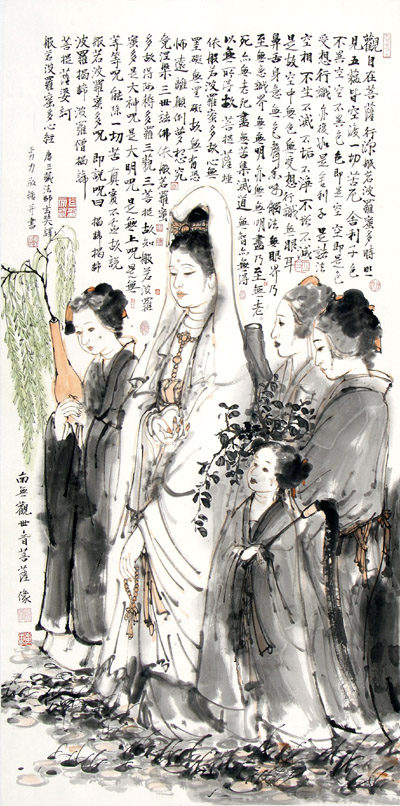 觀自在菩薩行深般若波羅蜜多時照
見五蘊皆空度一切苦厄舍利子色
不異空空不異色色即是空空即是色
受想行識亦復如是舍利子是諸法
空相不生不滅不垢不淨不增不減
是故空中無色無受想行識無眼耳
鼻舌身意無色聲香味觸法無眼界乃
至無意識界無無明亦無無明盡乃至無老
死亦無老死盡無苦集滅道無智亦無得
以無所得故菩提薩埵
依般若波羅蜜多故心無
罣礙無罣礙故無有恐
怖遠離顛倒夢想究
竟涅槃三世諸佛依般若波羅蜜
多故得阿耨多羅三藐三菩提故知般若波羅
蜜多是大神咒是大明咒是無上咒是無
等等咒能除一切苦真實不虛故說
般若波羅蜜多咒即說咒曰揭諦揭諦
波羅揭諦波羅僧揭諦
菩提薩婆訶
般若波羅蜜多心經
唐三藏法師玄奘譯
南無觀世音菩薩像